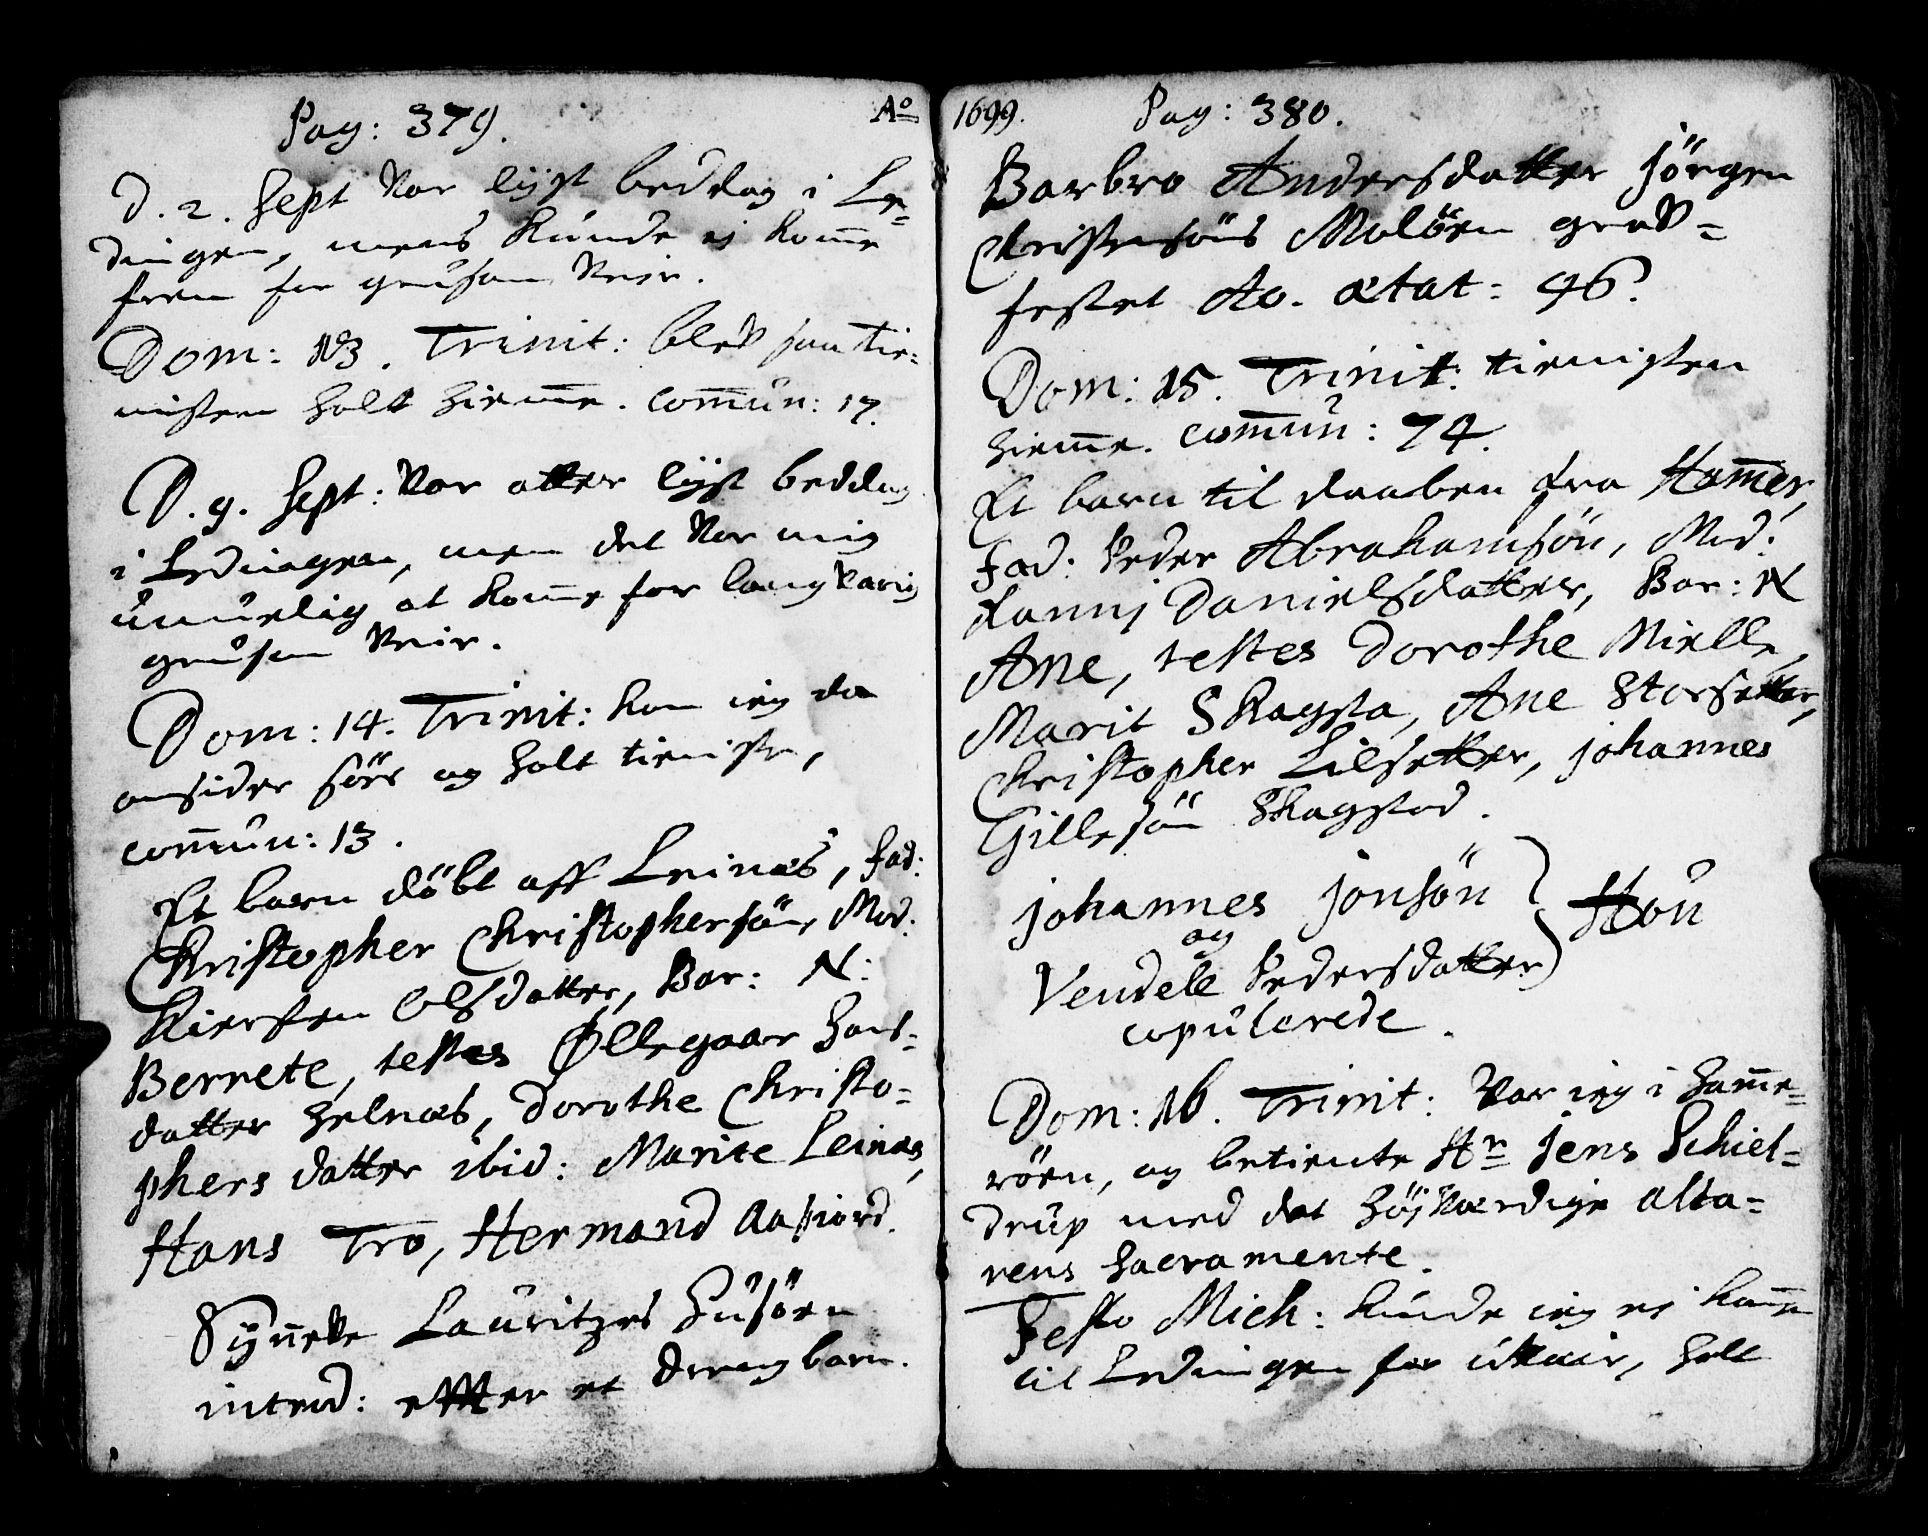 Pag: 379. Ao
D. 2. Sept var lijst beddag i Le-
dingen, mens kunde ej kom̄e
frem for grusom veir.
Dom: 13. Trinit: blev saa tie-
nisten holt hiem̄e. com̄un: 17.
D. 9. Sept: var atter lijst beddag
i Ledingen, men det var mig
umuelig at kom̄e for langvarig
grusom veir.
Dom: 14. Trinit: kom ieg da
omsider söer og holt tieniste,
com̄un: 13.
Et barn döbt aff Leinæs, fad:
Christopher Christophersön, Mod:
Kiersten Olsdatter, Bar: N:
Bernete, testes Øllegaar Hans-
datter Helnæs, Dorothe Christo-
phers datter ibid: Marite Leinæs,
Hans Trö, Hermand Aafiord.
Synneve Lauritzes Husöen
introd: effter et drengbarn.
1699. Pag: 380.
Barbro Andersdatter Jörgen
Christensöns Molöen grav-
festet Ao. ætat: 46.
Dom: 15. Trinit: tienisten
hiem̄e. com̄un: 74.
Et barn til daaben fra Ham̄er,
Fad: Peder Abrahamsön, Mod:
Fanni Danielsdatter, Bar: N
Ane, testes Dorothe Nielle,
Marit Skagsta, Ane Storsetter,
Christopher Lilsetter, Johannes
Gillesön Skagstad.
Johannes Jonsön
og } Hou
Vendele Pedersdatter
copulerede.
Dom: 16. Trinit: Var ieg i Ham̄e-
röen, og betiente Hr Jens Schiel-
drup med det höjværdige alta-
rens Sacramente.
Festo Mich: kunde ieg ej kom̄e
til Ledingen for uvair, holt